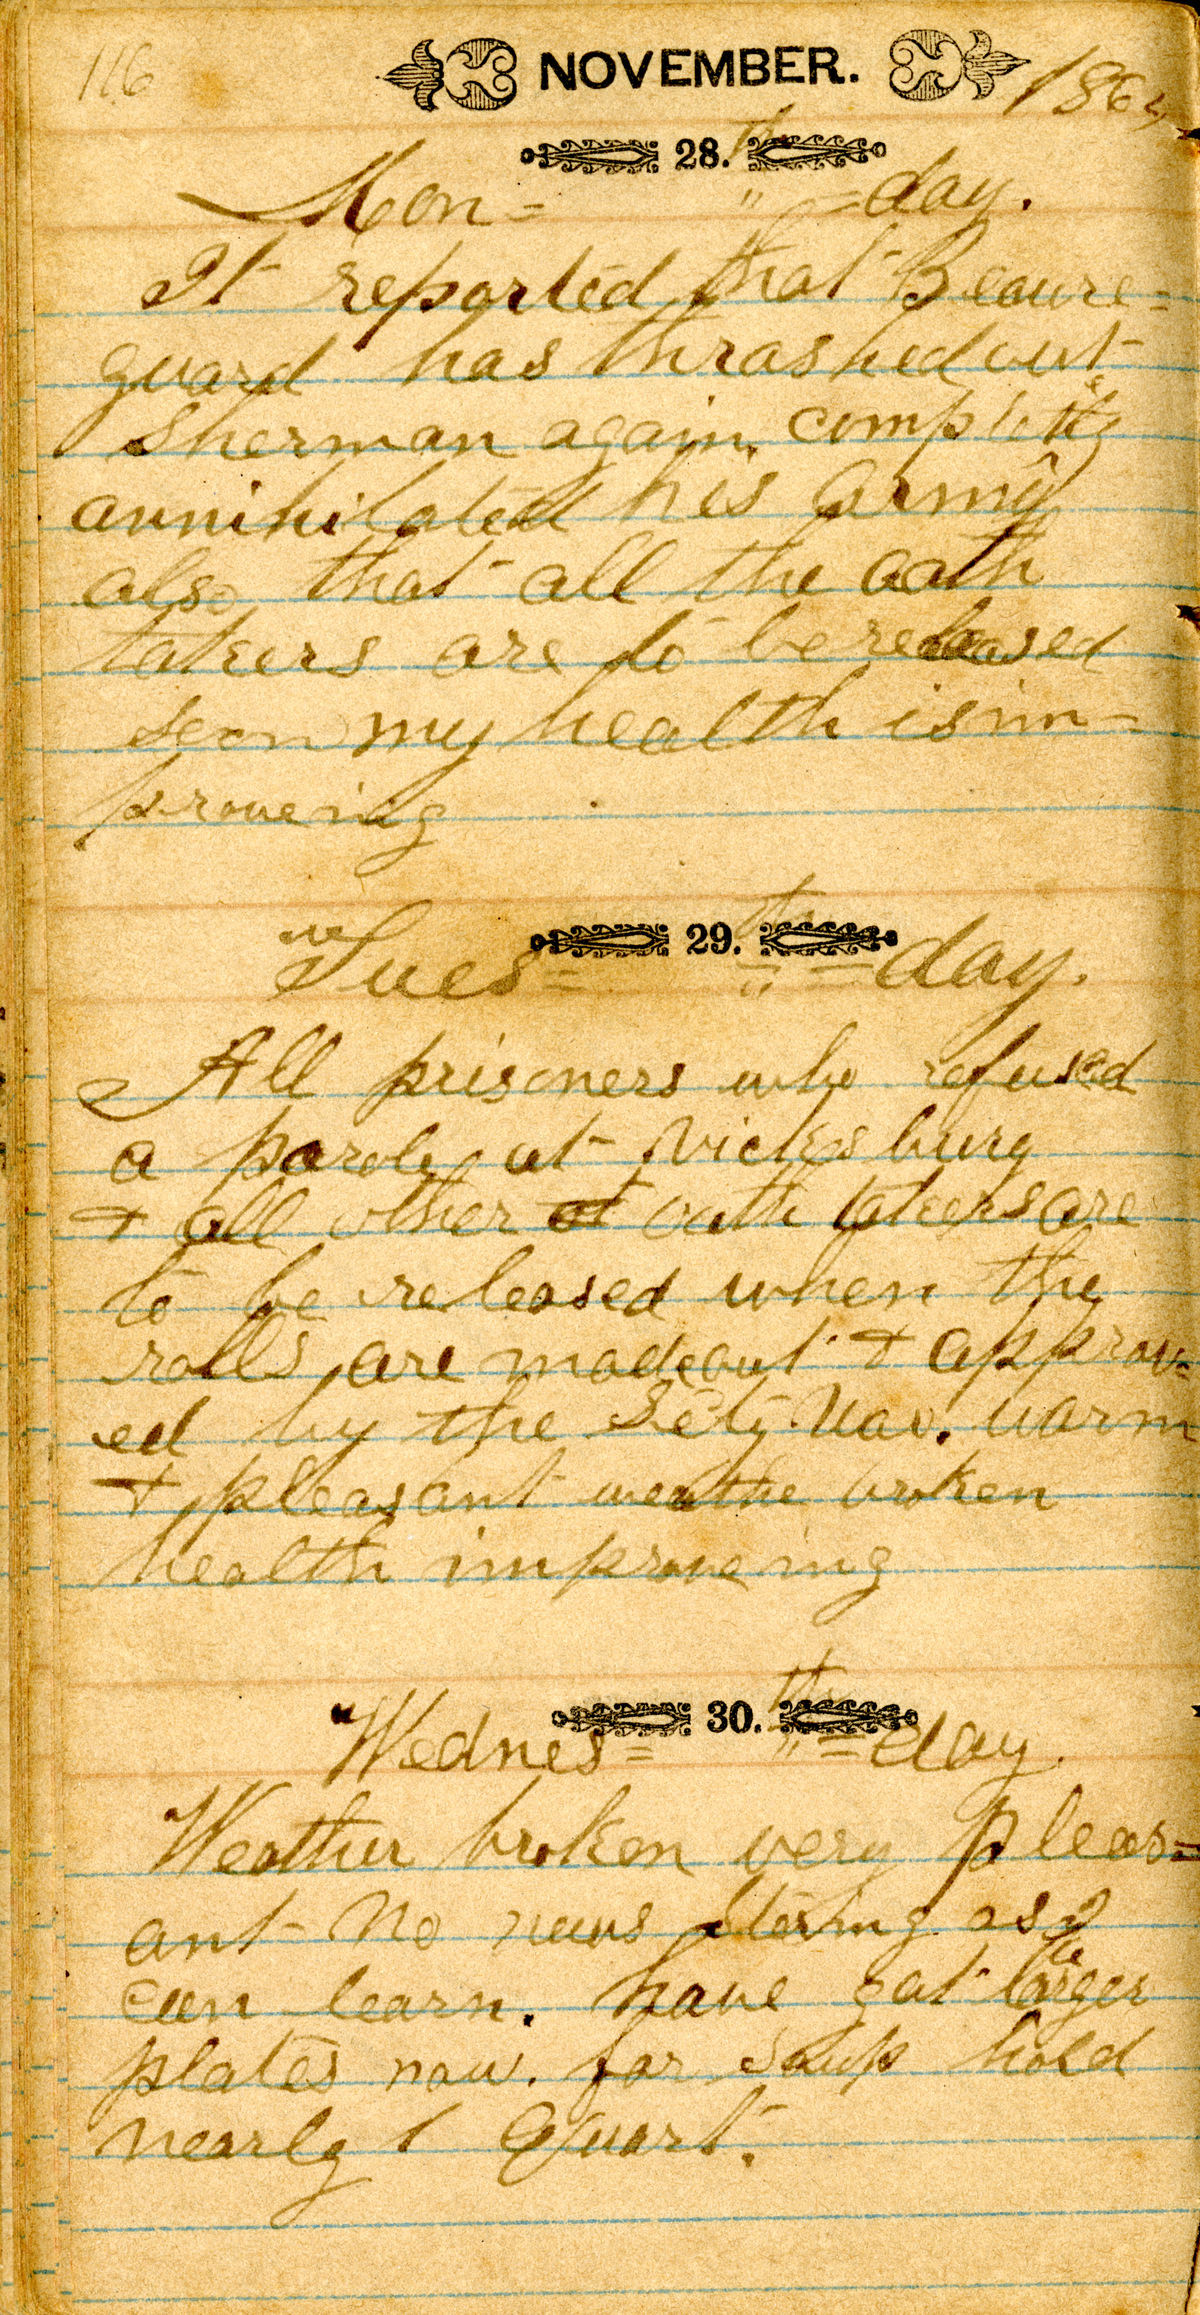 116 NOVEMBER. 1864
28.th
Mon= " =day.
It reported that Beaure=
guard has thrashed out
Sherman again. completely
annihilated his army
also that all the oath
takers are to be released
soon my health is im=
proveing
29.th
Tues= " =day.
All prisoners who refused
a parole at Vicksburg
& all other oath takers are
to be released when the
rolls are made out & approv=
ed by the Sety. Nav. warm
& pleasant weathe broken
health improveing
30.th
Wednes= " =day.
Weather broken very pleas=
ant No news stering as I
can learn. have got larger
plates now. for Soup hold
nearly 1 Quart.